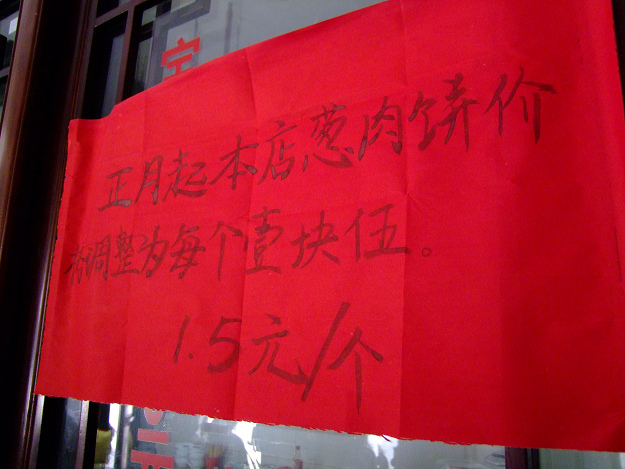 正月起本店葱肉饼价
格调整为每个壹块伍。
1.5元/个